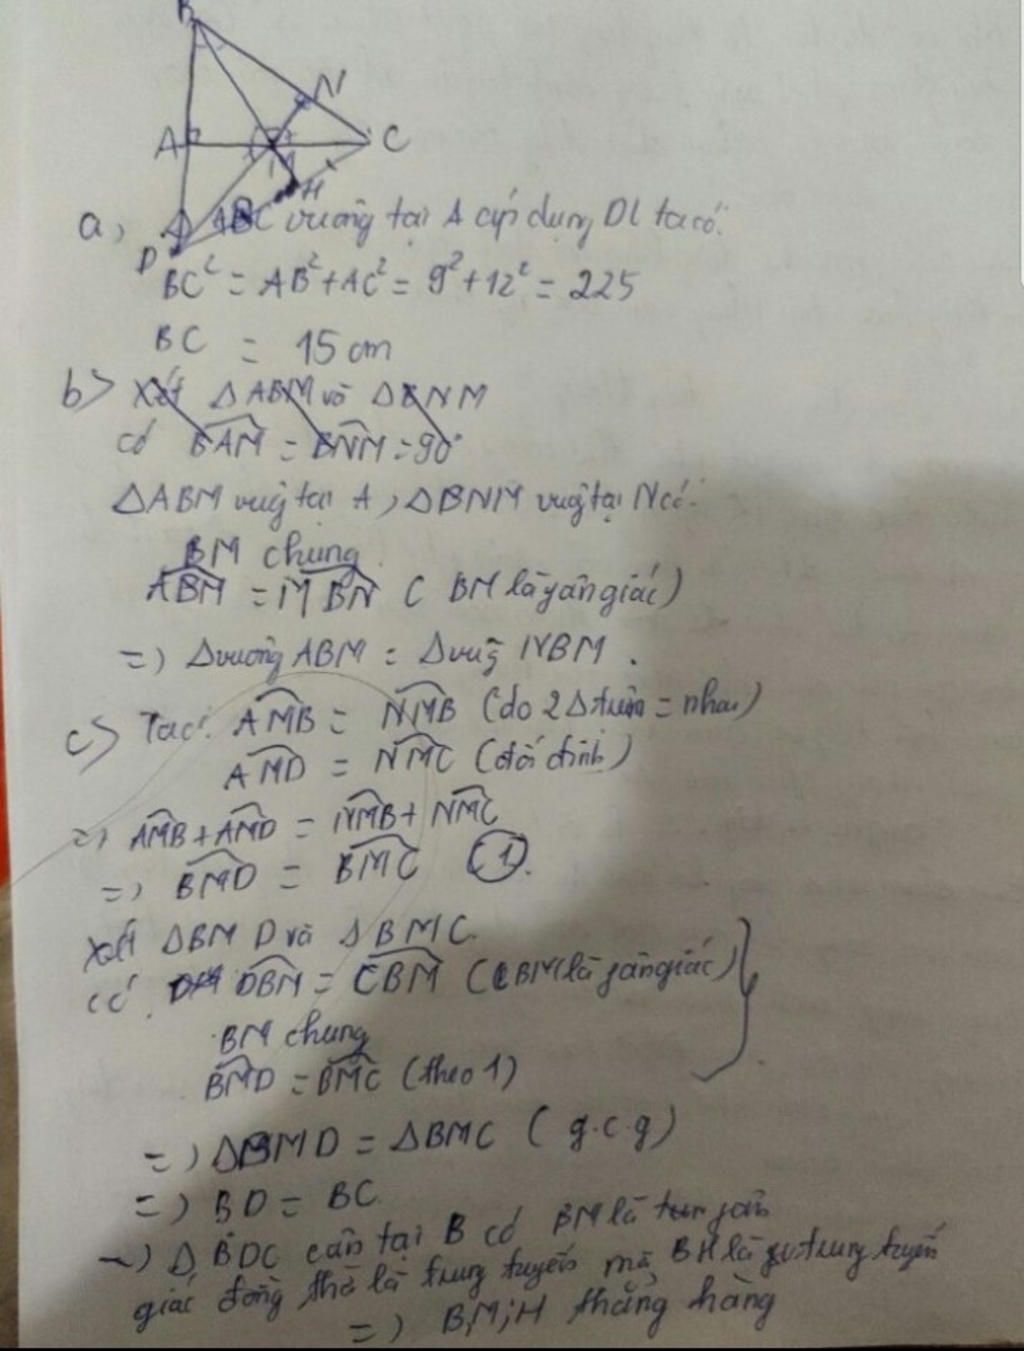 B
N
A
C
M
H
D
a, Δ ABC vuông tại A áp dụng DL ta có:
BC² = AB² + AC² = 9² + 12² = 225
BC = 15 cm
b> Xét Δ ABM và Δ BNM
có BAM = BNM = 90°
ΔABM vuôg tại A, ΔBNM vuôg tại N có:
BM chung
ABM = MBN ( BM là fân giác)
=) Δvuông ABM = Δvuôg NBM.
c> Ta có: AMB = NMB (do 2Δ trên = nhau)
AMD = NMC (đối đỉnh)
=) AMB + AMD = NMB + NMC
=) BMD = BMC (1).
Xét ΔBMD và ΔBMC
có DBM = CBM ( BM là fân giác)
BM chung
BMD = BMC (theo 1)
=) ΔBMD = ΔBMC ( g.c.g)
=) BD = BC
=) Δ BDC cân tại B có BM là fân
giác đồng thời là trung tuyến mà BH là trung tuyến
=) B,M,H thẳng hàng